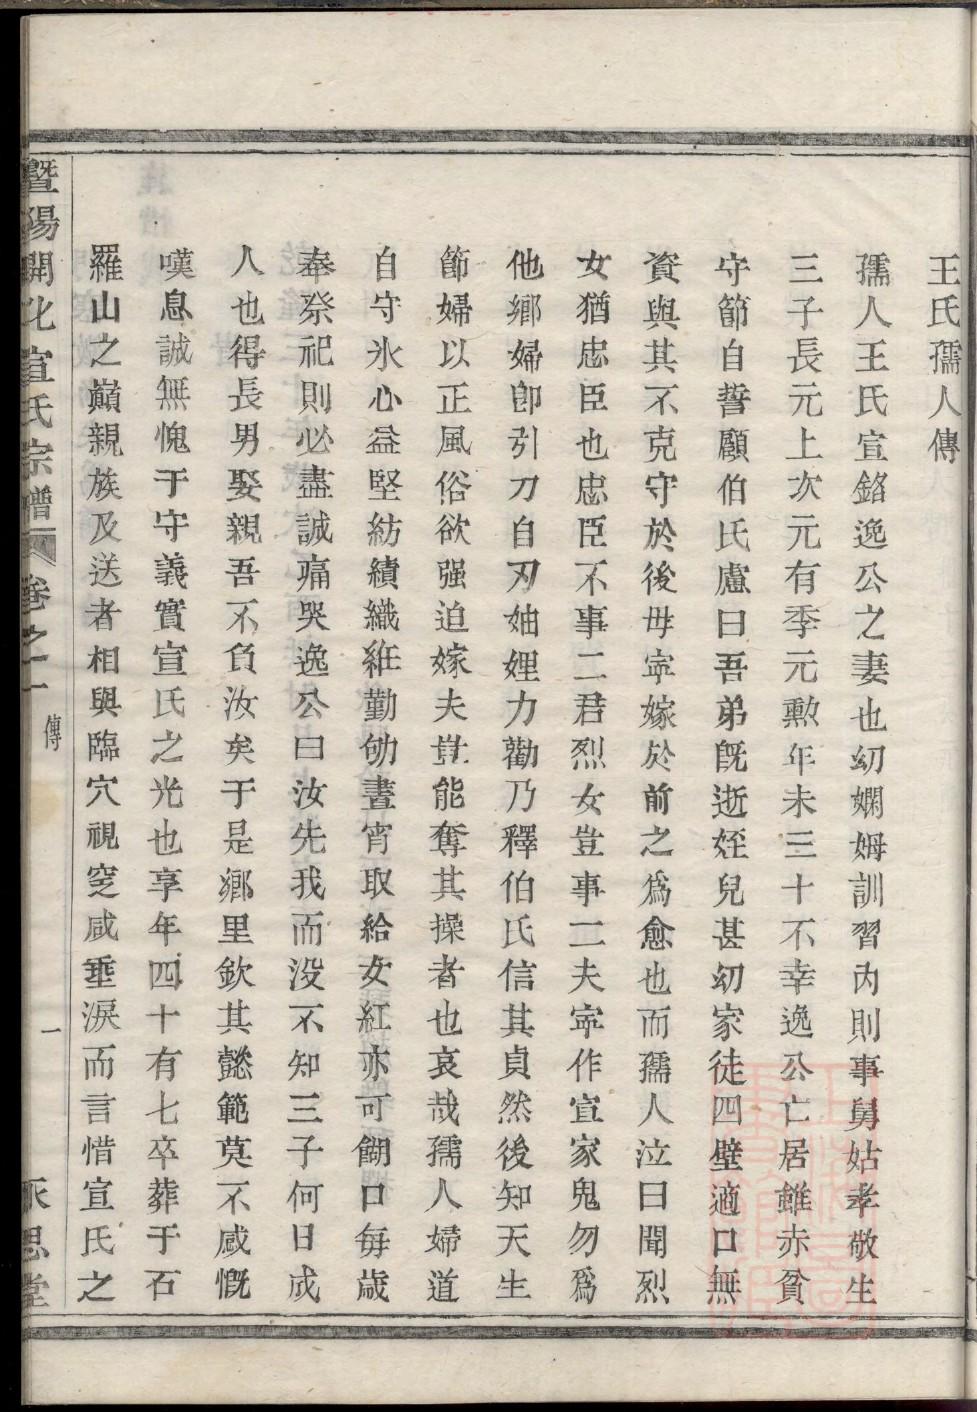 王氏孺人傳
孺人王氏宣銘逸公之妻也幼嫻姆訓習內則事舅姑孝敬生
三子長元上次元有季元勲年未三十不幸逸公亡居雖赤貧
守節自誓願伯氏慮曰吾弟旣逝姪兒甚幼家徒四壁適口無
資與其不克守於後毋寧嫁於前之爲愈也而孺人泣曰聞烈
女猶忠臣也忠臣不事二君烈女豈事二夫寧作宣家鬼勿爲
他鄉婦卽引刀自刃妯娌力勸乃釋伯氏信其貞然後知天生
節婦以正風俗欲强迫嫁夫豈能奪其操者也哀哉孺人婦道
自守氷心益堅紡績織絍勤劬晝宵取給女紅亦可餬口每歲
奉祭祀則必盡誠痛哭逸公曰汝先我而没不知三子何日成
人也得長男娶親吾不負汝矣于是鄉里欽其懿範莫不感慨
嘆息誠無愧于守義實宣氏之光也享年四十有七卒葬于石
羅山之巔親族及送者相與臨穴視窆咸垂淚而言惜宣氏之
暨陽開化宣氏宗譜 卷之一 傳 一 永思堂